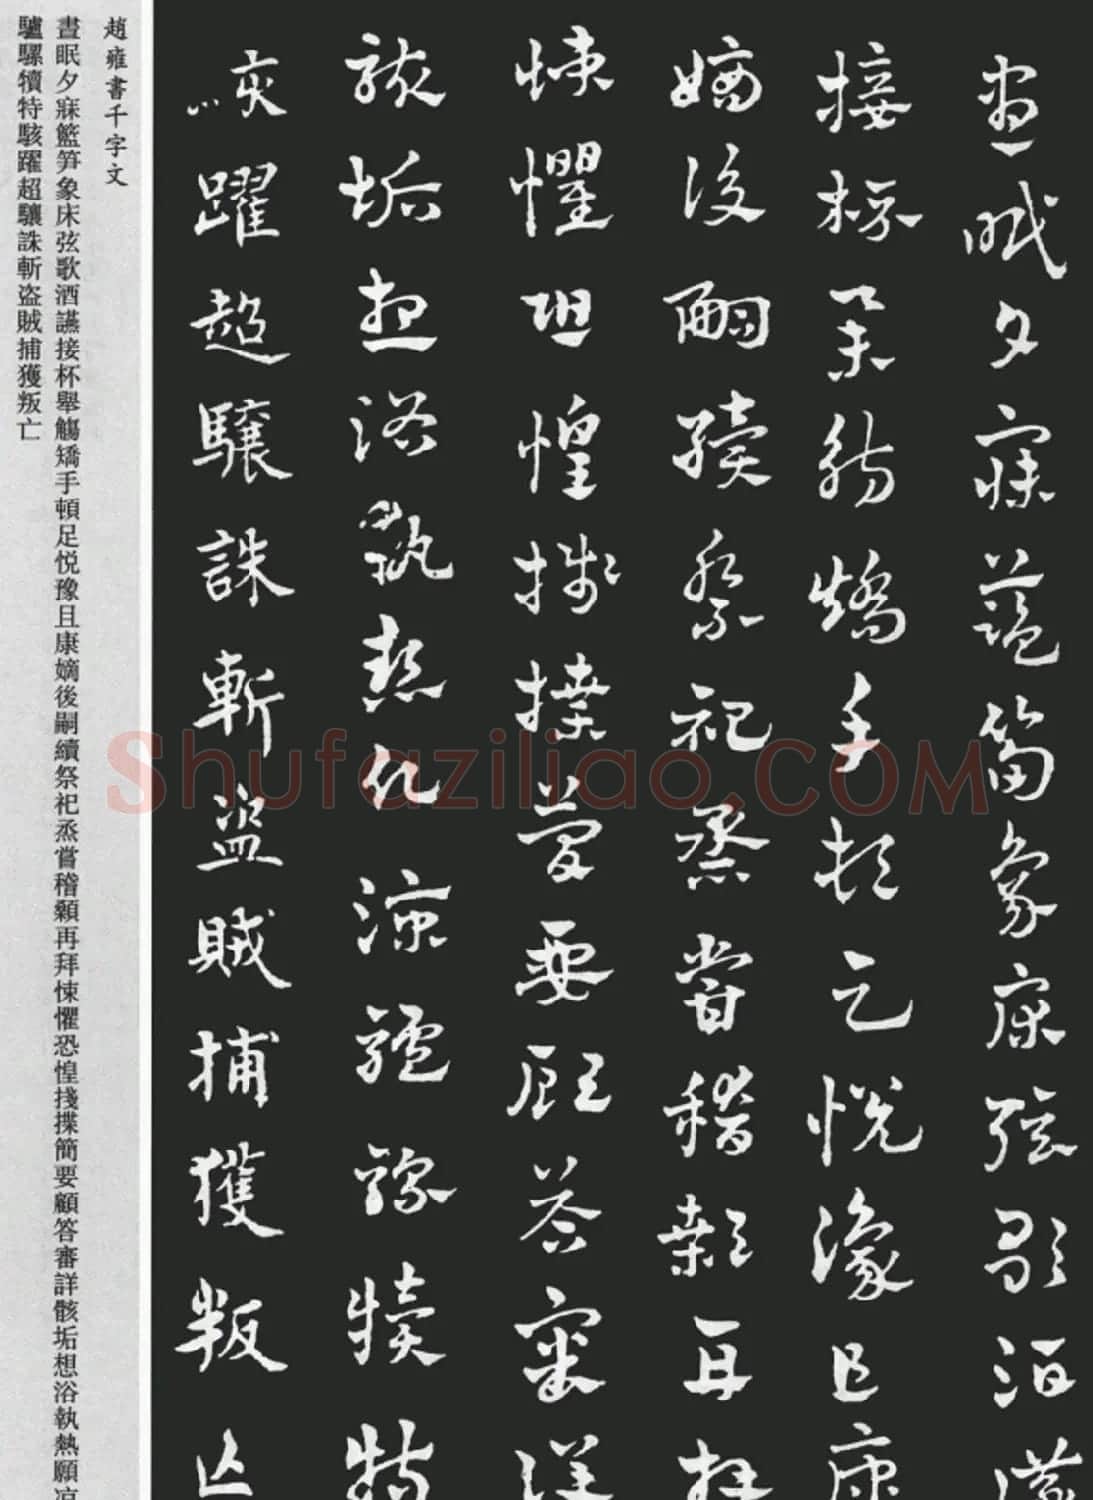 晝眠夕寐藍笋象床弦歌酒讌
接杯舉觴矯手頓足悦豫且康
嫡後嗣續祭祀烝嘗稽顙再拜
悚懼恐惶揲簡要顧答審詳
骸垢想浴執熱願凉驢騾犢特
駭躍超驤誅斬盗賊捕獲叛亡
趙雍書千字文
晝眠夕寐籃笋象床弦歌酒讌接杯舉觴矯手頓足悦豫且康嫡後嗣續祭祀烝嘗稽顙再拜悚懼恐惶揲簡要顧答審詳骸垢想浴執熱願凉
驢騾犢特駭躍超驤誅斬盗賊捕獲叛亡
Shufaziliao.COM